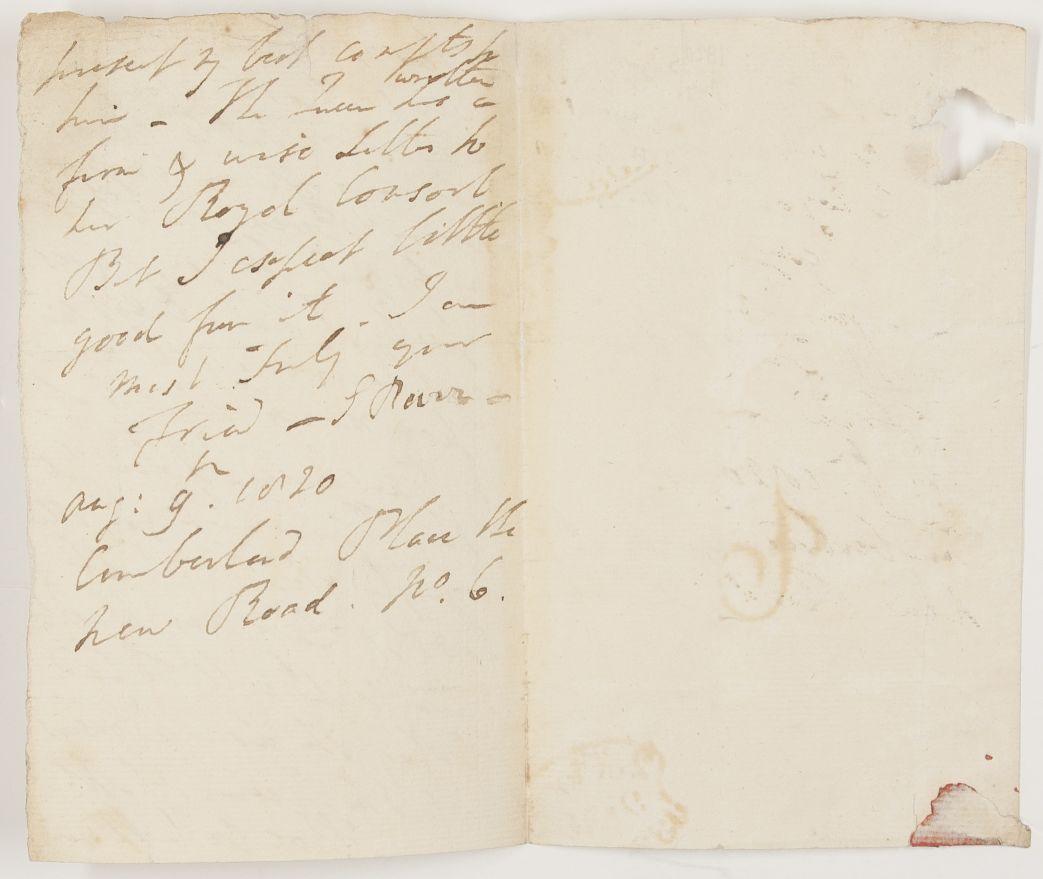 present my best compts to
him - The Queen has written a
firm & wise Letter to
her Royal Consort
But I expect little
good from it - I am
most truly your
Friend - S Parr -
Aug: 9th. 1820
Cumberland Place the
New Road. No. 6.